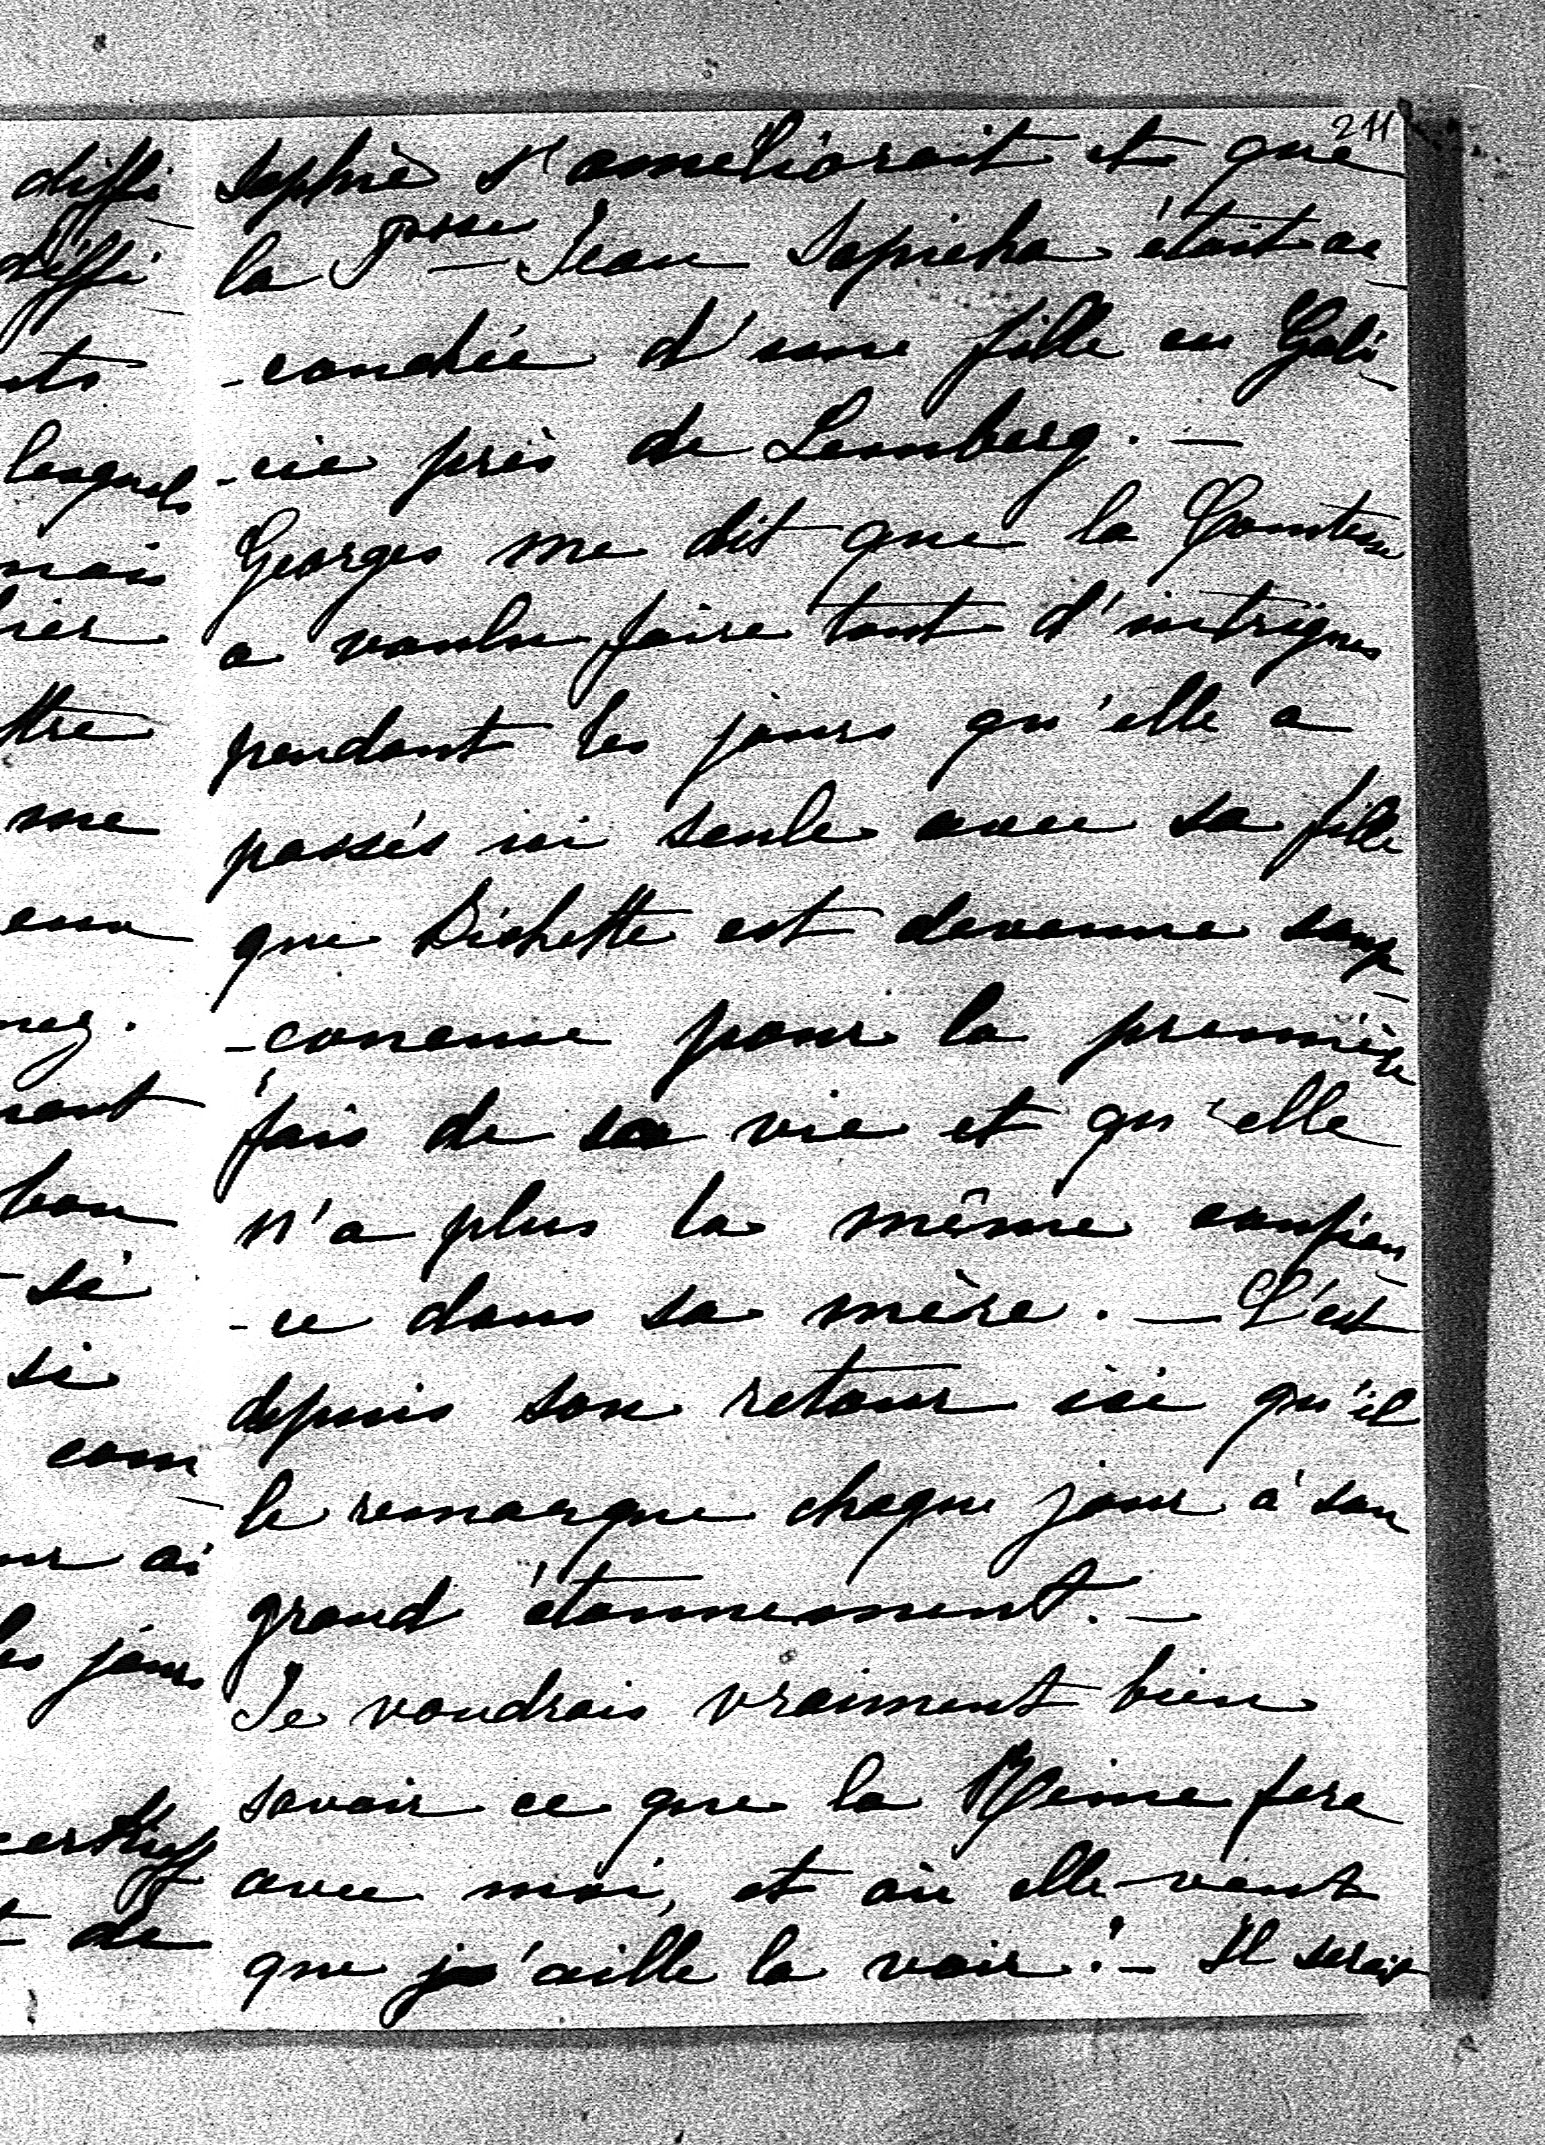 211
Sophie s'améliorait et que
la Psse Jean Sapieha était ac
-couchée d'une fille en Gali
-cie près de Lemberg. —
Georges me dit que la Comtesse
a voulu faire tant d'intrigues
pendant les jours qu'elle a
passés ici seule avec sa fille
que Bichette est devenue soup
-çoneuse pour la première
fois de sa vie et qu'elle
n'a plus la même confien
-ce dans sa mère. — C'est
depuis son retour ici qu'il
le remarque chaque jour à son
grand étonnement. —
Je voudrais vraiment bien
savoir ce que la Reine fera
avec moi, et où elle veut
que j'aille la voir! — Il serait
diffi
diffi
nts
lesquels
mais
ttre
me
bon
si
com
ai
les jours
de